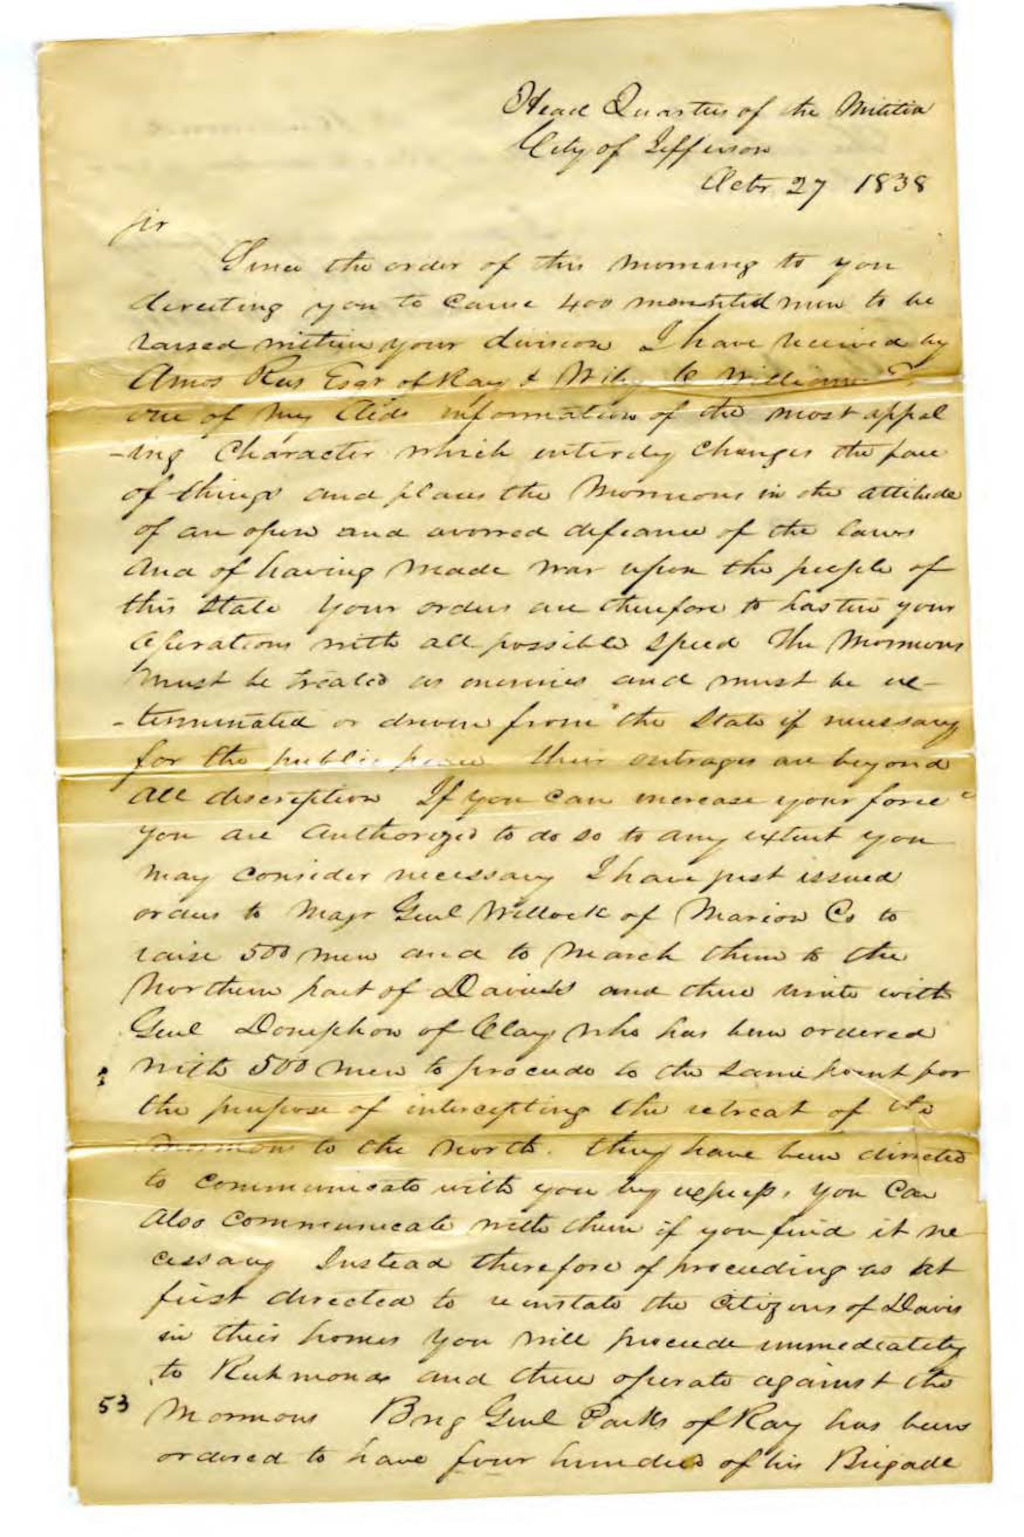 Head Quarters of the Militia
City of Jefferson
Octr 27 1838
Sir
Since the order of this morning to you
directing you to cause 400 mounted men to be
raised within your division I have received by
Amos Rees Esqr of Ray & Wiley C Williams
one of my Aids information of the most appal
-ing Character which entirely changes the face
of things and places the Mormons in the attitude
of an open and avowed defiance of the laws
and of having made war upon the people of
this State Your orders are therefore to hasten your
operations with all possible speed The Mormons
must be treated as enemies and must be ex-
-terminated or driven from the State if necessary
for the public peace their outrages are beyond
all description If you can increase your force
you are authorized to do so to any extent you
may consider necessary I have just issued
orders to Majr Genl Willock of Marion Co to
raise 500 men and to march them to the
Northern part of Daviess and there unite with
Genl Doniphon of Clay who has been ordered
with 500 men to proceede to the same point for
the purpose of intercepting the retreat of the
Mormons to the north. they have been directed
to communicate with you by express, you can
also communicate with them if you find it ne
cessary Instead therefore of proceeding as at
first directed to reinstate the citizens of Davis
in their homes you will proceede immediately
to Richmond and there operate against the
53 Mormons Brig Genl Parks of Ray has been
ordered to have four hundred of his Brigade